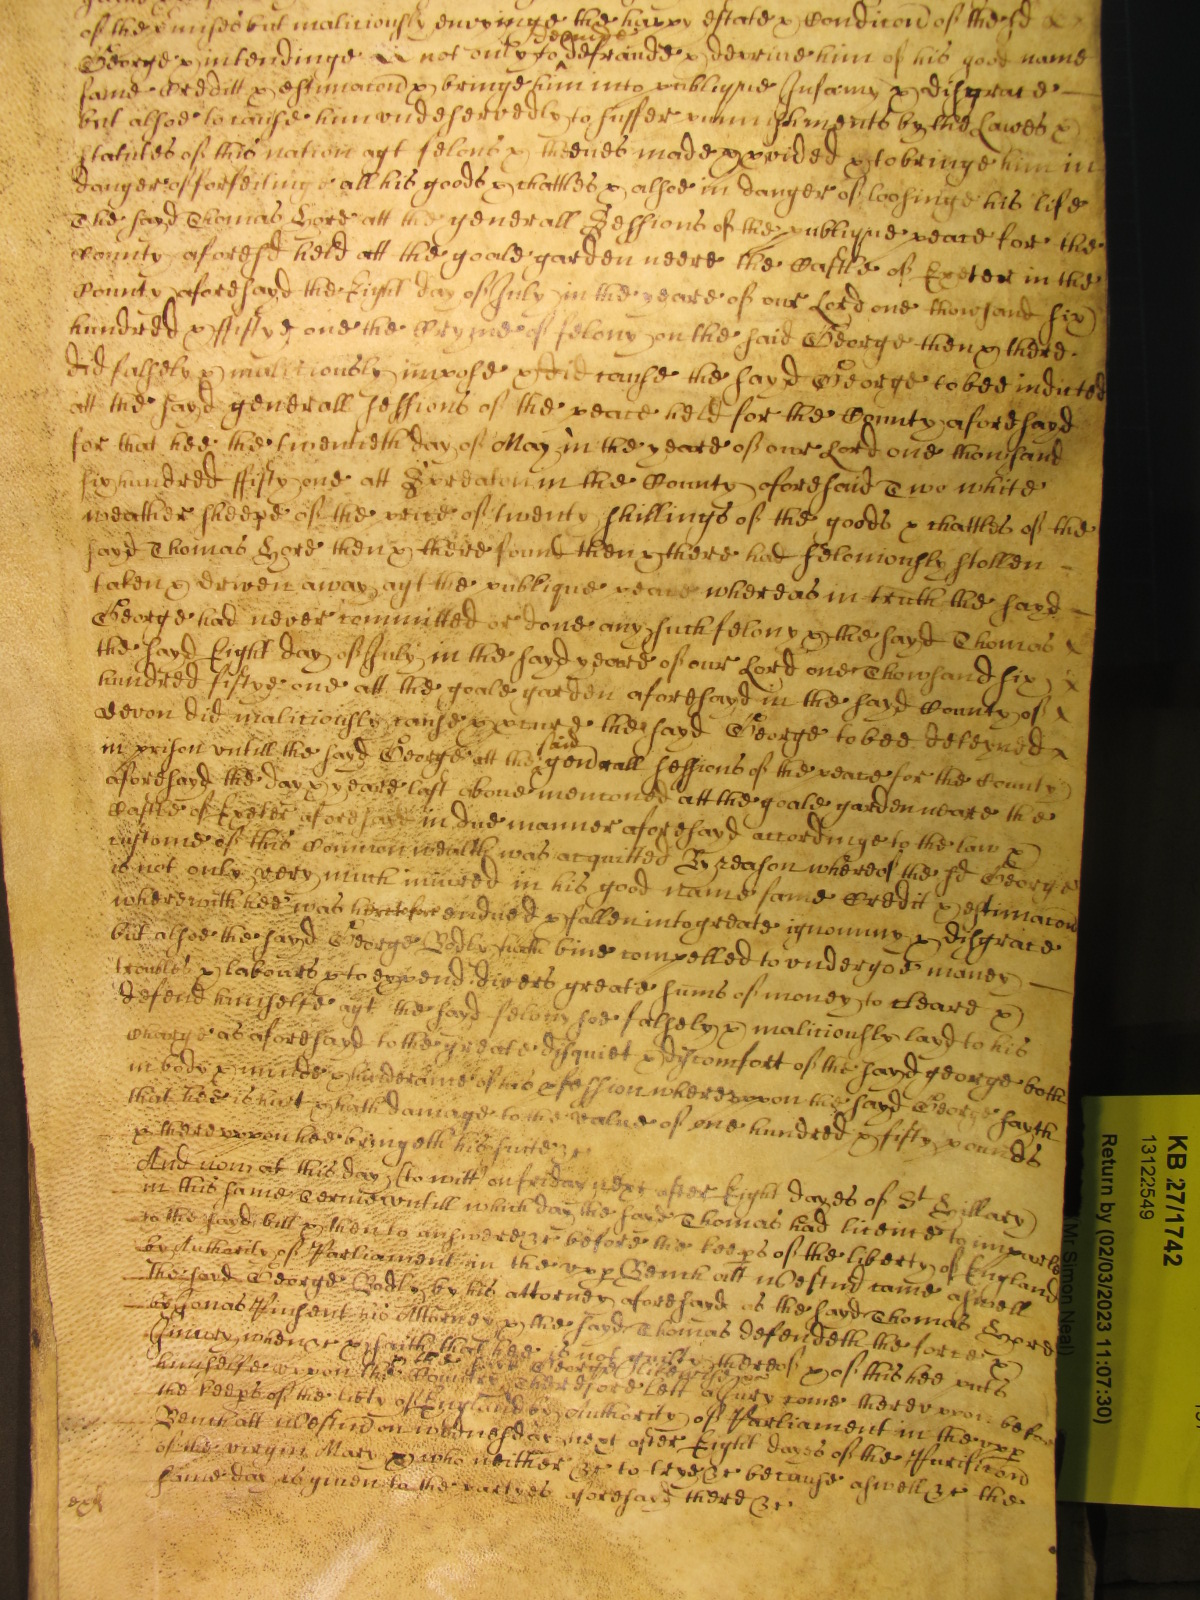 of the pmises but maliciously envyinge the happy estate & Condicon of the sd
George & intendinge not only to defraude & deprive him of his good name
fame Creditt & estimacon & bringe him into publique Infamy & disgrace
but alsoe to cause him undeservedly to suffer punnishments by the Lawes &
statutes of this nation agt felons & theeves made & pvided & to bringe him in
danger of forfeitinge all his goods & chattles & alsoe in danger of loosinge his life
The sayd Thomas Gore att the generall Sessions of the publique peace for the
County aforesd held att the goale garden neere the Castle of Exeter in the
County aforesayd the Eight day of July in the yeare of our Lord one thowsand six
hundred & fiftye one the Cryme of felony on the said George then & there
did falsely & maliciously impose & did cause the sayd George to bee indicted
att the sayd generall sessions of the peace held for the County aforesayd
for that hee the twentieth day of May in the yeare of our Lord one thowsand
six hundred fifty one att in the County aforesaid Two white
weather sheepe of the price of twenty shillings of the goods & chattles of the
sayd Thomas Gore then & there found then & there had feloniously stollen
taken & driven away agt the publique peace whereas in truth the sayd
George had never committed or done any such felony & the sayd Thomas
the sayd Eight day of July in the sayd yeare of our Lord one Thowsand six
hundred fiftye one att the goale garden aforesayd in the sayd County of
Devon did maliciously cause & pcure the sayd George to bee deteyned
in prison untill the sayd George att the said generall sessions of the peace for the County
aforesayd the day & yeare last above mencioned att the goale garden neare the
Castle of Exeter aforesayd in due manner aforesayd accordinge to the law &
custome of this Common wealth was acquitted By reason whereof the sd George
is not only very much iniured in his good name fame Creditt & estimacon
wherewith hee was heretofore endued & fallen into greate ignominy & disgrace
but alsoe the sayd George Bodly hath bine compelled to undergoe maney
troubles & labours & to expend divers greate sums of money to cleare &
defend himselfe agt the sayd felony soe falsely & maliciously layd to his
Charge as aforesayd to the greate disquiet & discomfort of the sayd George both
in body & minde & hinderance of his pfession whereuppon the sayd George sayth
that hee is hurt & hath damage to the value of one hundred & fifty pounds
& thereuppon hee bringeth his suite &c
And now at this day (to witt) on friday next after Eight dayes of St Hillary
in this same Terme untill which day the sayd Thomas had licence to imparle
to the sayd bill & then to answere &c before the keeps of the liberty of England
by Authority of Parliament in the upp Bench att Westmr came aswell
the sayd George Bodly by his attorney aforesayd as the sayd Thomas Gore
by Jonas his Attorney & the sayd Thomas defendeth the force &
Iniury when &c & saith that hee is not guilty thereof & of this hee puts
himselfe uppon the Country & the sayd George likewise &c Therefore lett a Jury come thereuppon before
the keeps of the liBty of England by Authority of Parliament in the upp
Bench att Westmr on wednesday next after Eight dayes of the Purificon
of the virgin Mary & who neither &c to trye &c because aswell &c the
same day is given to the partyes aforesayd there &c
KB 27/1742
13122549
Return by (02/03/2023 11:07:30)
Mr Simon Neal)